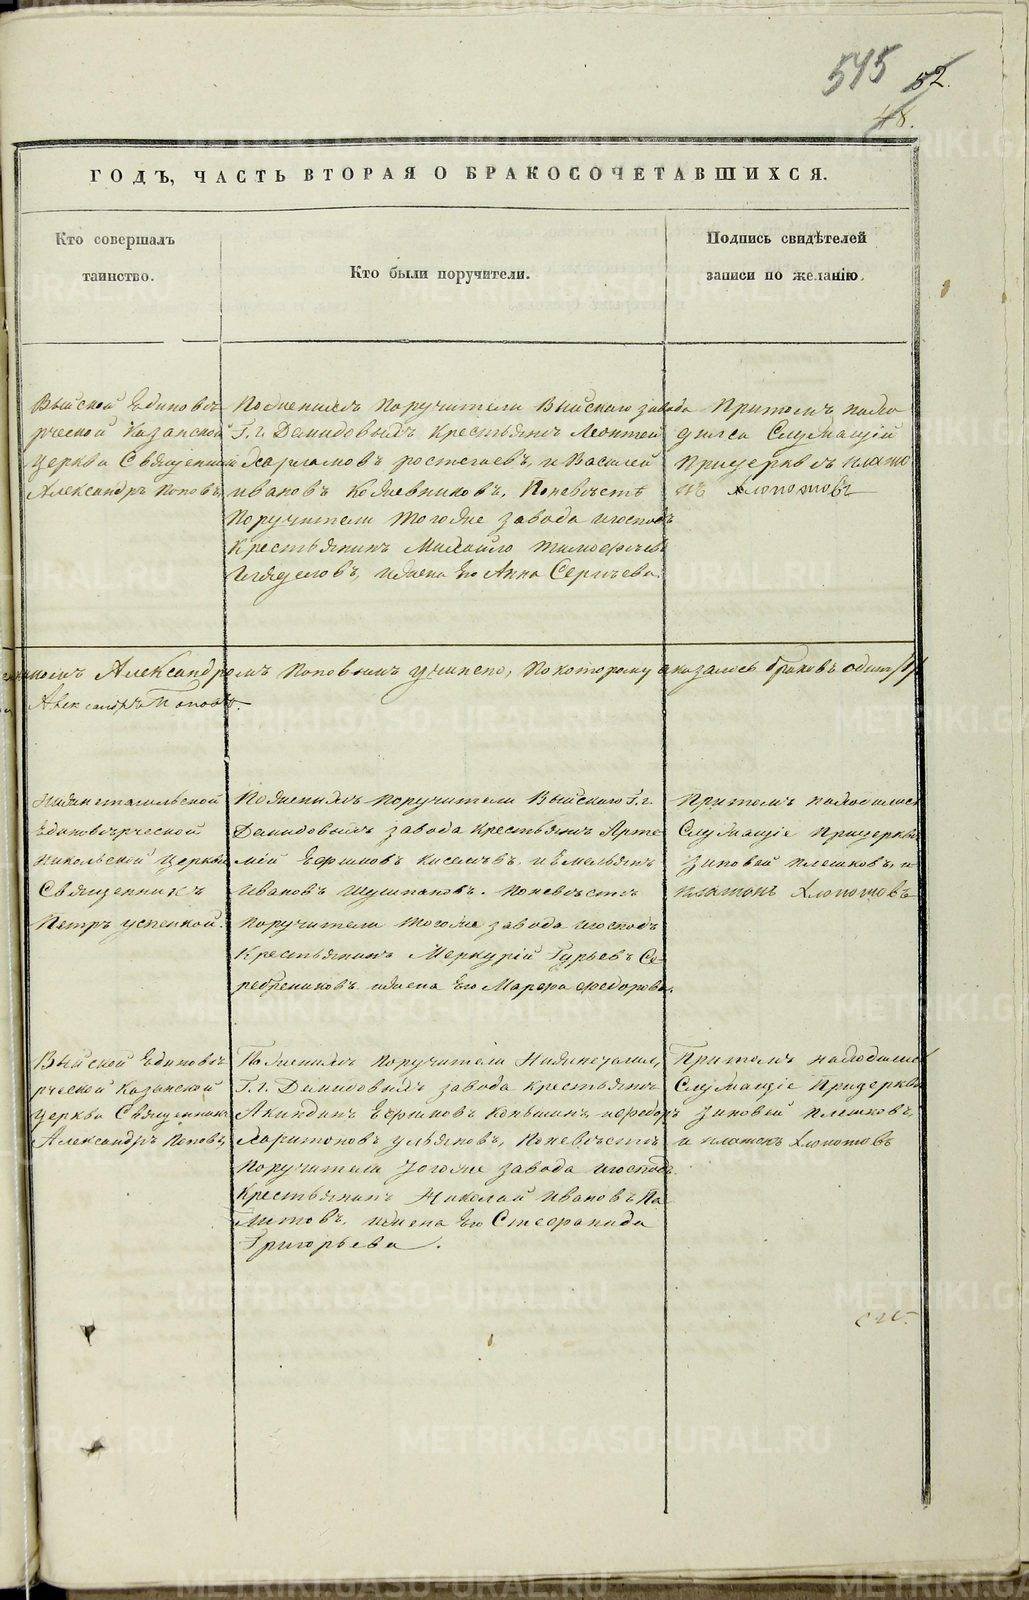 545 52.
48.
ГОДЪ, ЧАСТЬ ВТОРАЯ О БРАКОСОЧЕТАВШИХСЯ.
Кто совершалъ
таинство.
Кто были поручители.
Подпись свидѣтелей
записи по желанію.
Выйской Единовѣ
рческой Казанской
Церкви Священникъ
Александръ Поповъ
Поженихѣ поручители Выйскаго завода
Г.г. Демидовыхъ Крестьянъ Леонтей
Харламовъ ростегаевъ, и Василей
ивановъ Кожевниковъ. Поневѣстѣ
Поручители тогоже завода игосподъ
Крестьянинъ Михайло тимофѣевъ
жена Его Анна Сергѣева.
Притомъ нахо
дился Служащій
Прицерквѣ плато
нъ Хлопотовъ
Александромъ Поповымъ учинено, по которому оказалось браковъ одинъ /1/
Александръ Поповъ.
Нижнетагильской
Единовѣрческой
Никольской Церкви
Священникъ
Петръ успенской.
Поженихѣ поручители Выйскаго Г.г.
Демидовыхъ завода Крестьянъ Арте
мій Ефимовъ Киселѣвъ, иЕмельянъ
Ивановъ Шушпановъ. Поневѣстѣ
поручители тогоже завода игосподъ
Крестьянинъ Меркурій Гурьевъ Се-
ребрениковъ ижена Его Марфа федорова.
Притомъ находились
Служащіе Прицерквѣ
Зиновей плешковъ, и
платонъ Хлопотовъ
Выйской Единовѣ
рческой Казанской
Церкви Священникъ
Александръ Поповъ,
Поженихѣ поручители Нижнетагил,
Г.г. Демидовыхъ завода крестьянъ
Акиндинъ Ефимовъ Копысинъ, ифедоръ
Харитоновъ ульяновъ, Поневѣстѣ
поручители тогоже завода игосподъ
Крестьянинъ Николай Ивановъ Па
литовъ, ижена Его Стефанида
Григорьева.
Притомъ находились
Служащіе Прицерквѣ
Зиновей плешковъ,
и платонъ Хлопотовъ
METRIKI.GASO-URAL.RU